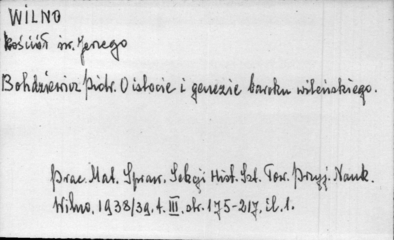 WILNO
kościół św. Jerego
Bohdziewicz Piotr. O istocie i genezie baroku wileńskiego.
Prac. Mat. Spraw. Sekcji Hist. Szt. Tow. Przyj. Nauk.
Wilno, 1938/39. t. III. str. 175-217. il. 1.